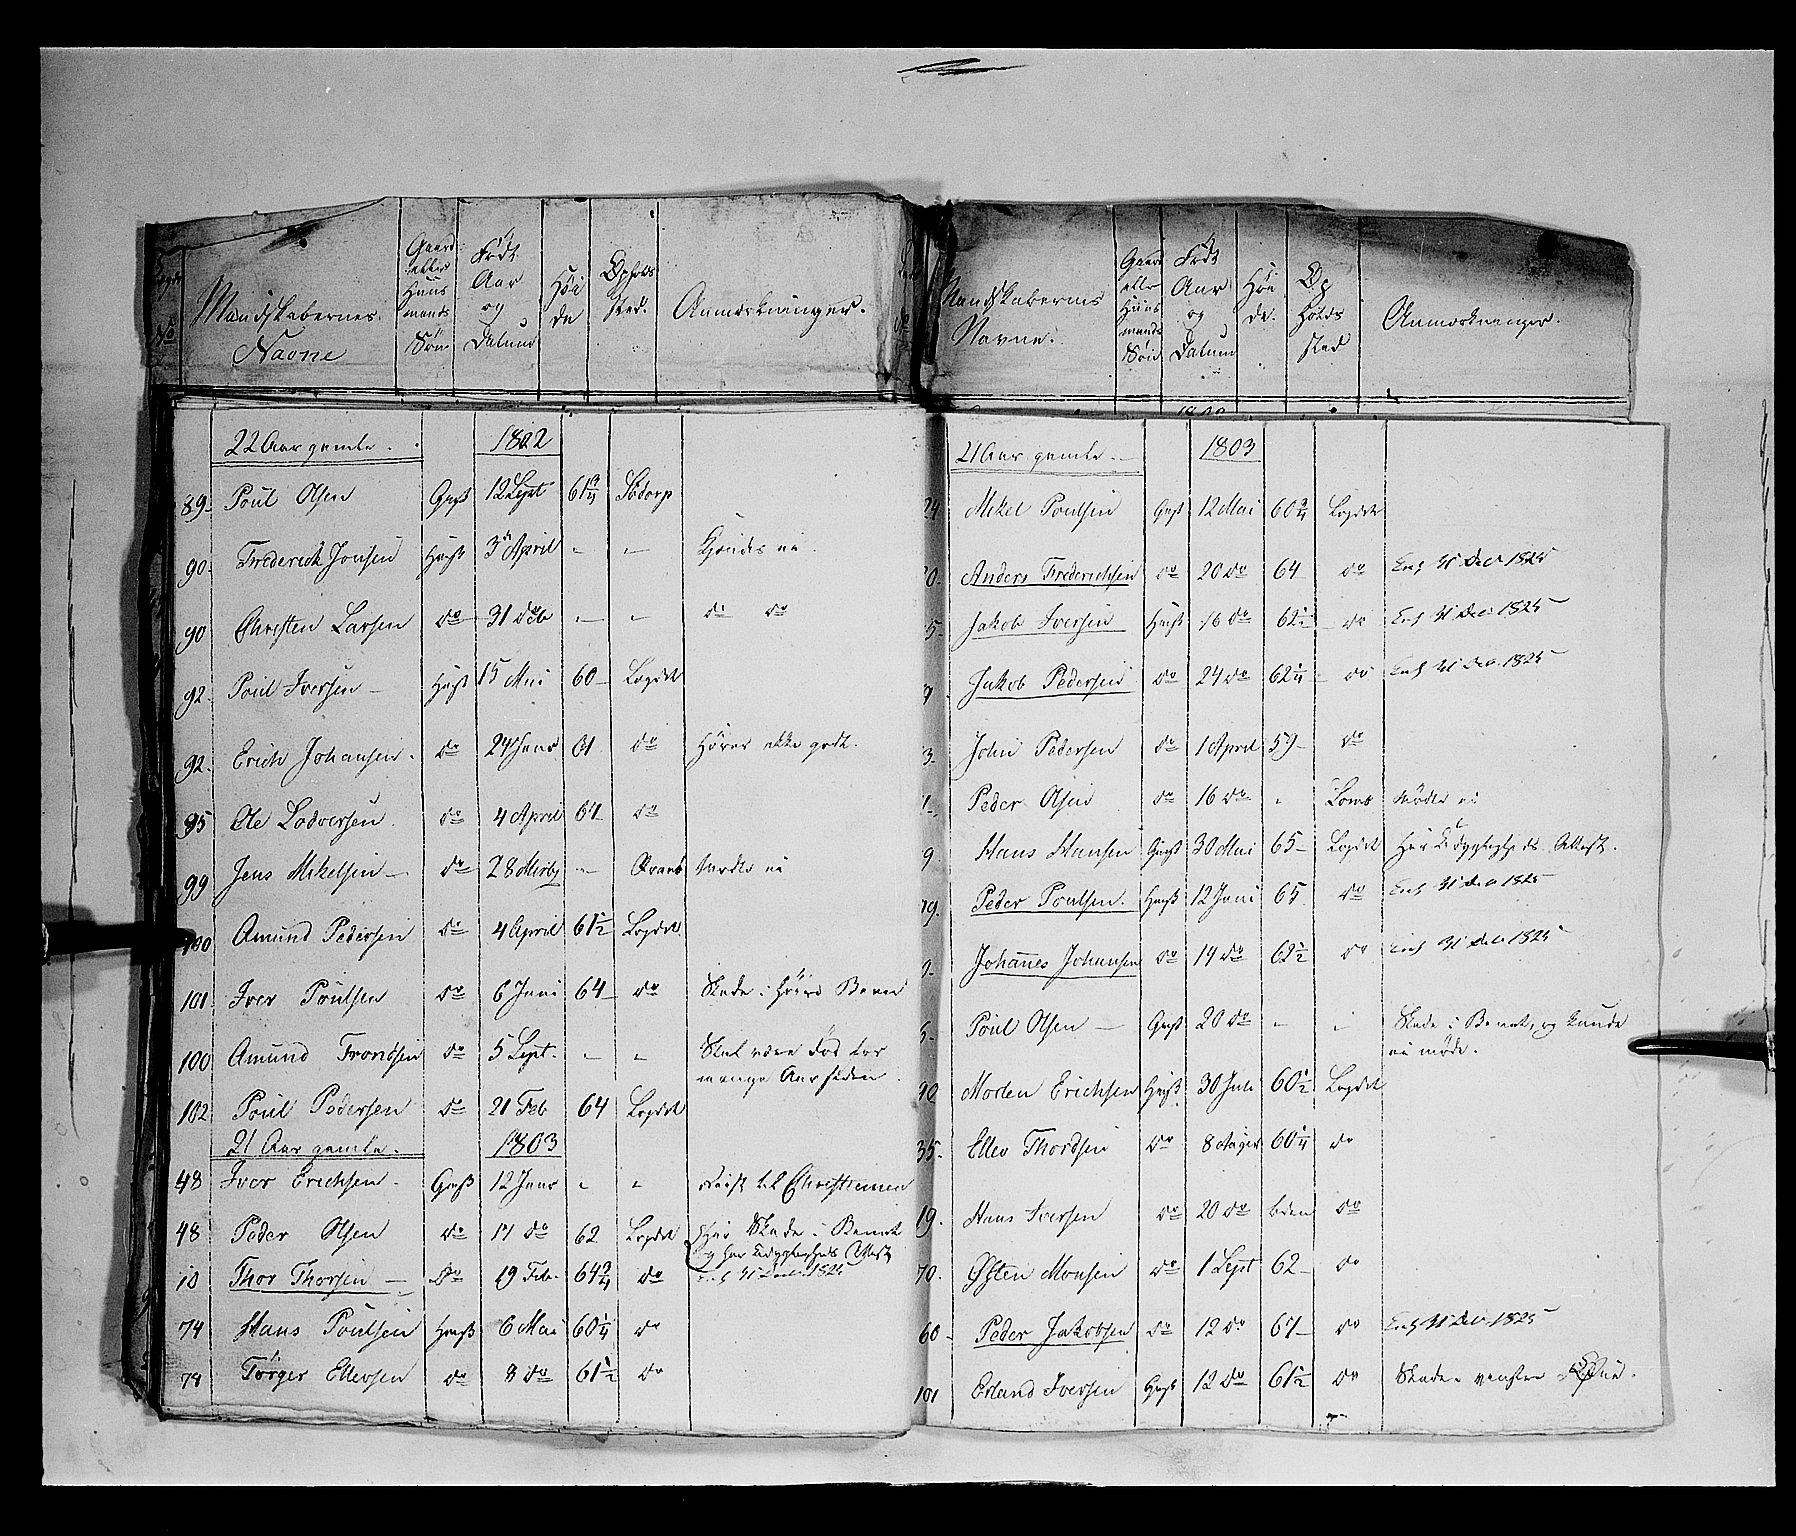 Mandskabernes Navne | Gaard eller Huus mands Søn | Født Aar og Datum | Høi de | Opholds Sted. | Anmærkninger.
22 Aar gamle. 1802
89. Poul Olsen Gmß 12 Sept 61¾ Sødorp
90. Frederich Jonsen Hmß 3 April - - Kjendes ei.
90 Christen Larsen do 31 - - do do
92. Poul Iversen - Hmß 15 Mai 60 - Legdet
92. Erich Johansen. do 24 Janr 61 do Hører ikke godt.
95 Ole Lodversen. do 4 April 61 do
99 Jens Mikelsen - do 28 - Mødte ei
100 Amund Pedersen do 4 April 61½ Legdet
101. Iver Poulsen do 6 Juni 64 - do Skade i Høire Been
100 Amund Trondsen do 5 Sept. - - Skal være Fød for
mange Aar siden
102 Poul Pedersen do 21 Feb 64 Legdet
21 Aar gamle. 1803
48 Iver Erichsen - Gmß 12 Janr - - Reist til Christianien
48 Peder Olsen do 17 do 62 Legdet Har Skade i Benet
og har Udygtigheds Attest
10 Thor Thorsen - do 19 Febr. 64¾ do 31 Dec 1825
74 Hans Poulsen Hmß 6 Mai 60¼ do
74 Torger Ellevsen do 8 do 61½ do
Mandskabernes Navne. | Gaard eller Huus mands Søn | Født Aar og Datum | Høi de. | Op holds sted | Anmærkninger.
21 Aar gamle. - 1803
24 Mikel Poulsen Gmß 12 Mai 60¾ Legdet
Anders Frederichsen do 20 do 64 do 31 Dec 1825
Jakob Iversen Hmß 16 do 62½ do 31 Dec 1825
Jakob Pedersen do 24 do 62¼ do 31 Dec 1825
John Pedersen do 1 April 59 - do
Peder Olsen do 16 do - Lomb Mødte ei
Hans Hansen Gmß 30 Mai 65 - Legdet Har Udygtigheds Attest.
Peder Poulsen. Hmß 12 Juni 65 do 31 Dec 1825
Johannes Johansen do 14 do 62½ do 31 Dec 1825
Poul Olsen - Gmß 20 do - - Skade i Benet, og kunde
ei møde.
Morten Erichsen Hmß 30 Juli 60½ Legdet
35. Ellev Thordsen do 8 60¼ do
19. Hans Iversen do 20 do liden do
70. Østen Monsen do 1 Sept 62 - do
60 - Peder Jakobsen do 12 do 67 - do 31 Dec 1825
101 Erland Iversen Gmß 12 do 61½ do Skade i venstre Øine.